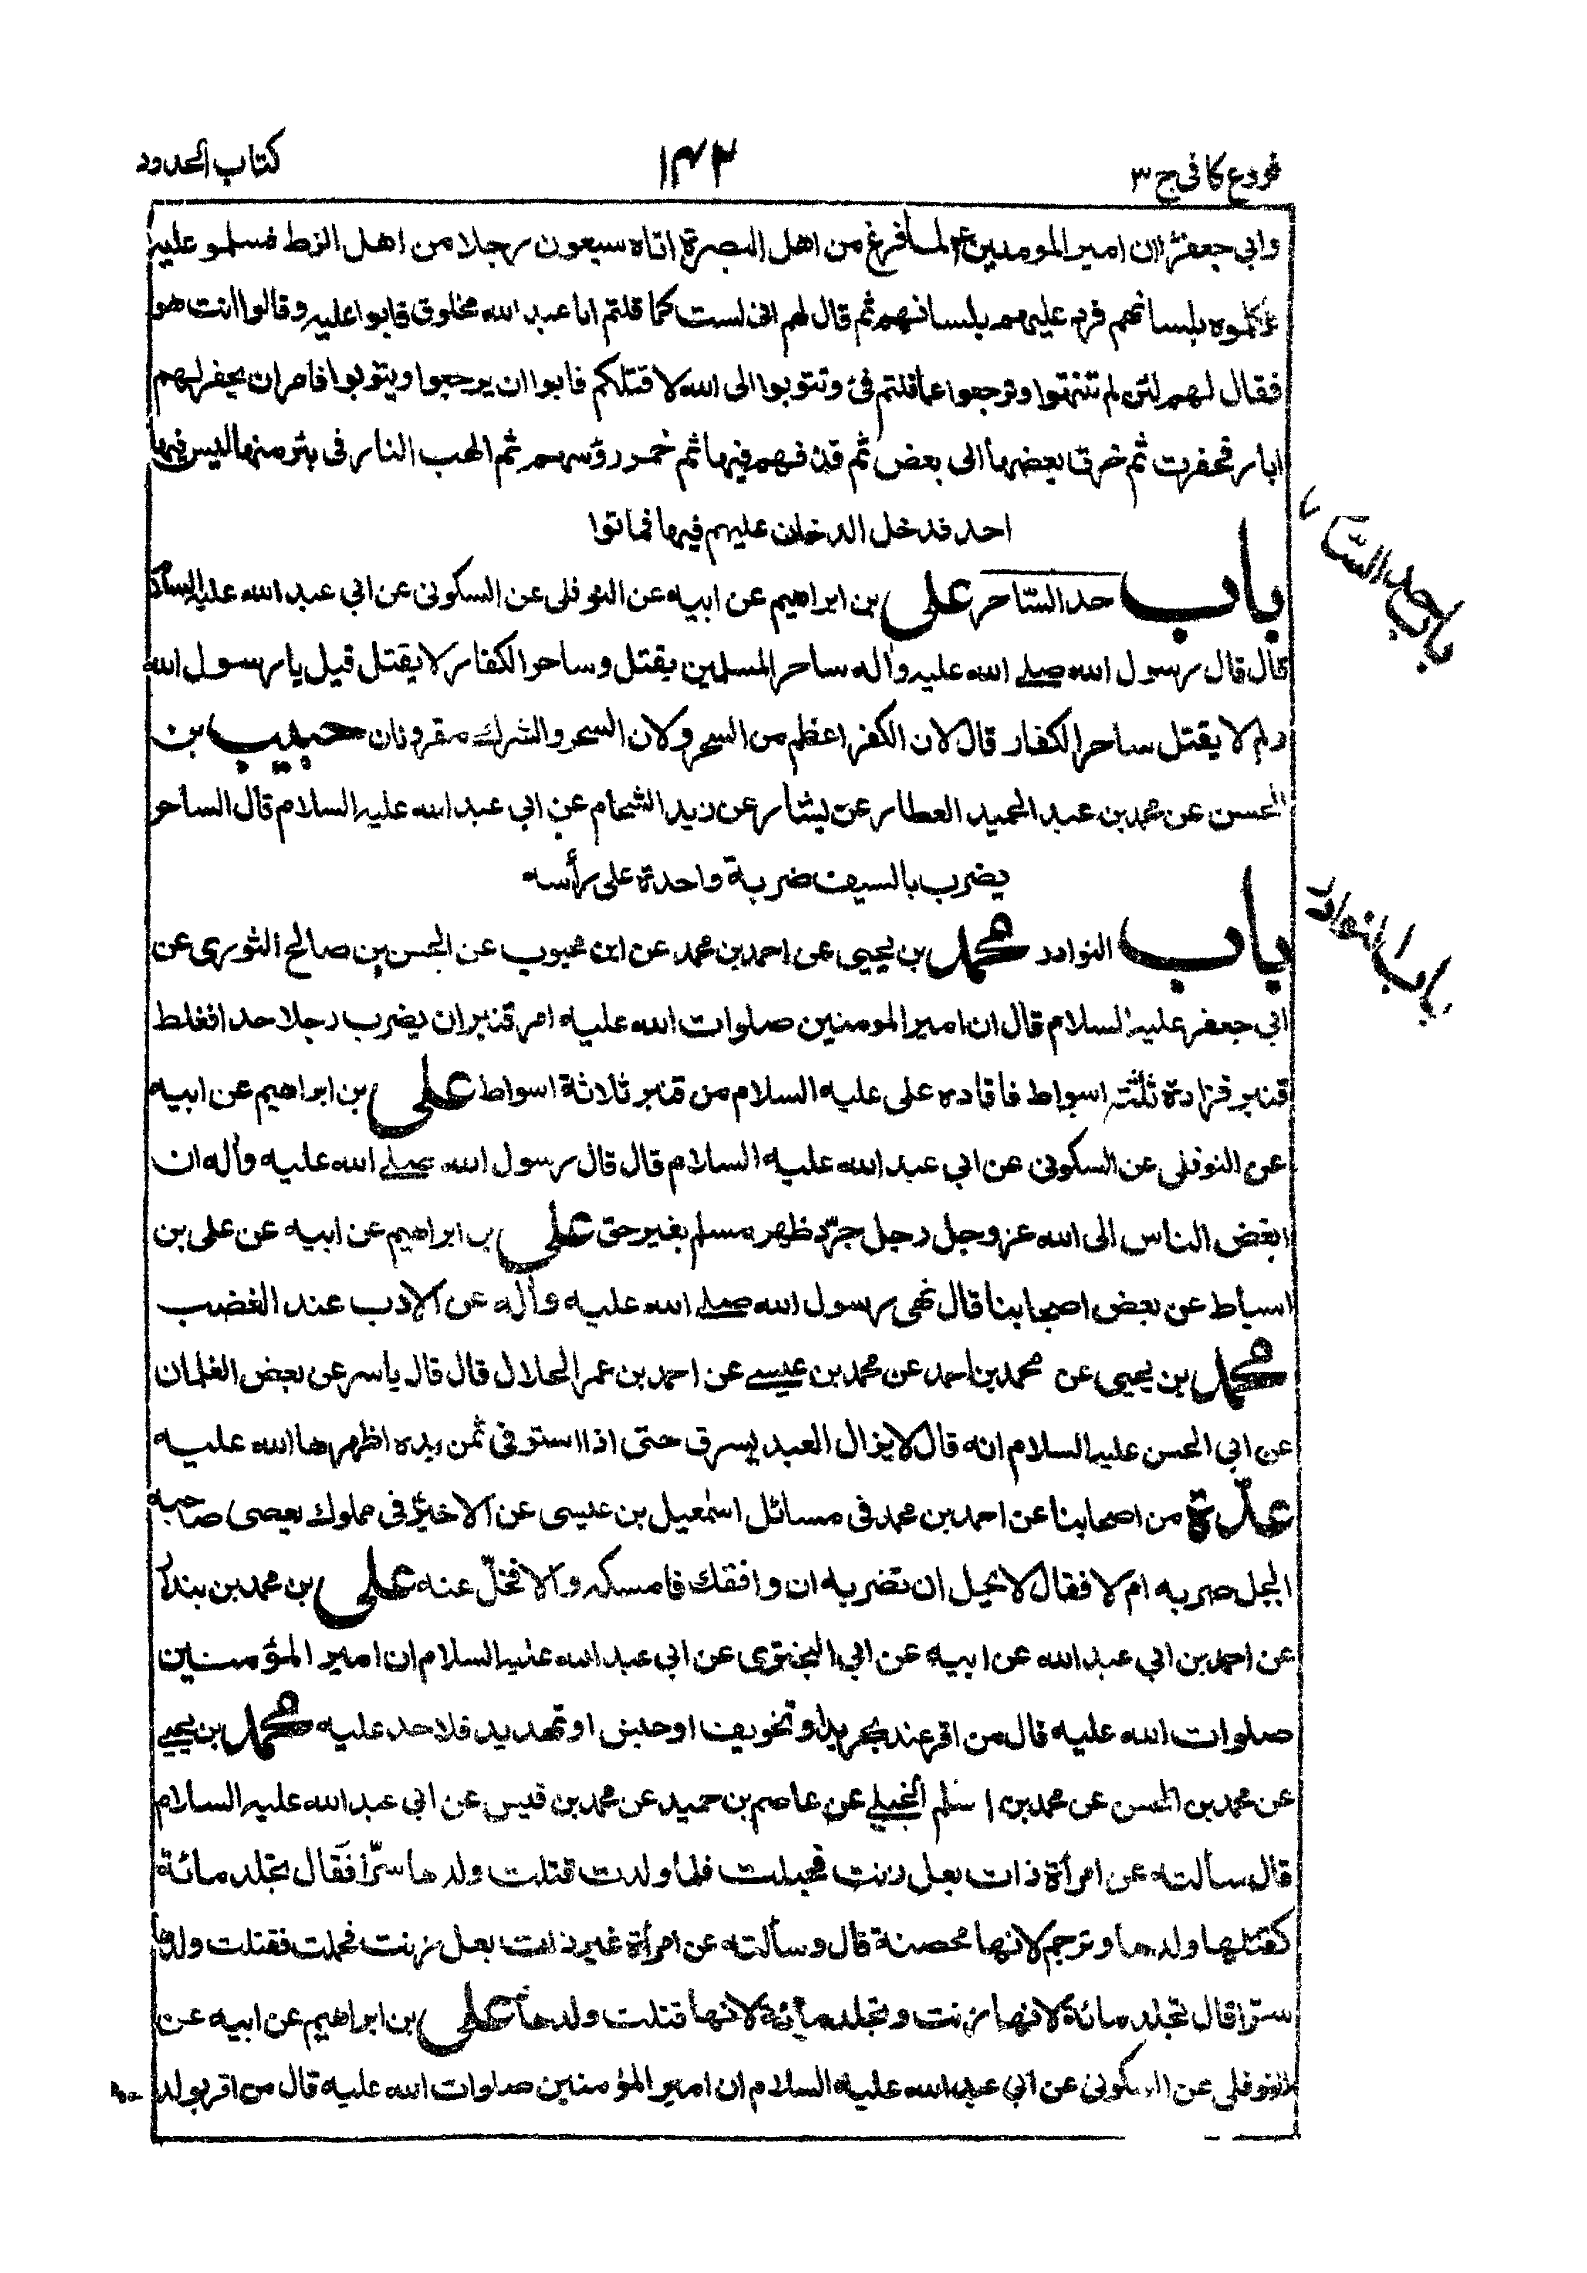 فروع كافى ج ٣
١٤٢
كتاب الحدود
وابي جعفرؑ ان امير المومنينؑ لما فرغ من اهل البصرة اتاه سبعون رجلا من اهل الزط فسلمو عليه
وكلموه بلسانهم فرد عليهم بلسانهم ثم قال لهم انى لست كما قلتم انا عبد الله مخلوق فابوا عليه وقالوا انت هو
فقال لهم لئن لم تنتهوا وترجعوا عما قلتم فىّ وتتوبوا الى الله لاقتلنكم فابوا ان يرجعوا ويتوبوا فامر ان يحفر لهم
ابار فحفرت ثم خرق بعضها الى بعض ثم قذفهم فيها ثم خمر رؤسهم ثم الهب النار فى بئر منها ليس فيها
احد فدخل الدخان عليهم فيها فماتوا
باب حد الساحر على بن ابراهيم عن ابيه عن النوفلى عن السكونى عن ابي عبد الله عليه السلام
قال قال رسول الله صلى الله عليه واله ساحر المسلمين يقتل وساحر الكفار لا يقتل قيل يا رسول الله
ولم لا يقتل ساحر الكفار قال لان الكفر اعظم من السحر ولان السحر والشرك مقرونان حبيب بن
الحسن عن محمد بن عبد الحميد العطار عن بشار عن زيد الشحام عن ابي عبد الله عليه السلام قال الساحر
يضرب بالسيف ضربة واحدة على رأسه
باب النوادر محمد بن يحيى عن احمد بن محمد عن ابن محبوب عن الحسن بن صالح الثورى عن
ابي جعفر عليه السلام قال ان امير المومنين صلوات الله عليه امر قنبر ان يضرب رجلا حدا فغلط
قنبر فزاده ثلثة اسواط فاقاده على عليه السلام من قنبر ثلاثة اسواط على بن ابراهيم عن ابيه
عن النوفلى عن السكونى عن ابي عبد الله عليه السلام قال قال رسول الله صلى الله عليه وآله ان
ابغض الناس الى الله عز وجل رجل جرّد ظهر مسلم بغير حق على بن ابراهيم عن ابيه عن على بن
اسباط عن بعض اصحابنا قال نهى رسول الله صلى الله عليه وآله عن الادب عند الغضب
محمد بن يحيى عن محمد بن احمد عن محمد بن عيسى عن احمد بن عمر الحلال قال قال ياسر عن بعض الغلمان
عن ابي الحسن عليه السلام انه قال لا يزال العبد يسرق حتى اذا استوفى ثمن يده اظهرها الله عليه
عدّة من اصحابنا عن احمد بن محمد فى مسائل اسمعيل بن عيسى عن الاخيرؑ فى مملوك يعصى صاحبه
ايحل ضربه ام لا فقال لا يحل ان تضربه ان وافقك فامسكه والا فخلّ عنه على بن محمد بن بندار
عن احمد بن ابي عبد الله عن ابيه عن ابي البخترى عن ابي عبد الله عليه السلام ان امير المؤمنين
صلوات الله عليه قال من اقر عند تجريد او تخويف او حبس او تهديد فلا حد عليه محمد بن يحيى
عن محمد بن الحسن عن محمد بن اسلم الجبلى عن عاصم بن حميد عن محمد بن قيس عن ابي عبد الله عليه السلام
قال سألته عن امرأة ذات بعل زنت فحبلت فلما ولدت قتلت ولدها سرّا فقال تجلد مائة
كقتلها ولدها وترجم لانها محصنة قال وسألته عن امرأة غير ذات بعل زنت فحملت فقتلت ولدها
سرّا قال تجلد مائة لانها زنت وتجلد مائة لانها قتلت ولدها على بن ابراهيم عن ابيه عن
النوفلى عن السكونى عن ابي عبد الله عليه السلام ان امير المؤمنين صلوات الله عليه قال من اقر بولد
باب حد الساحر
باب النوادر